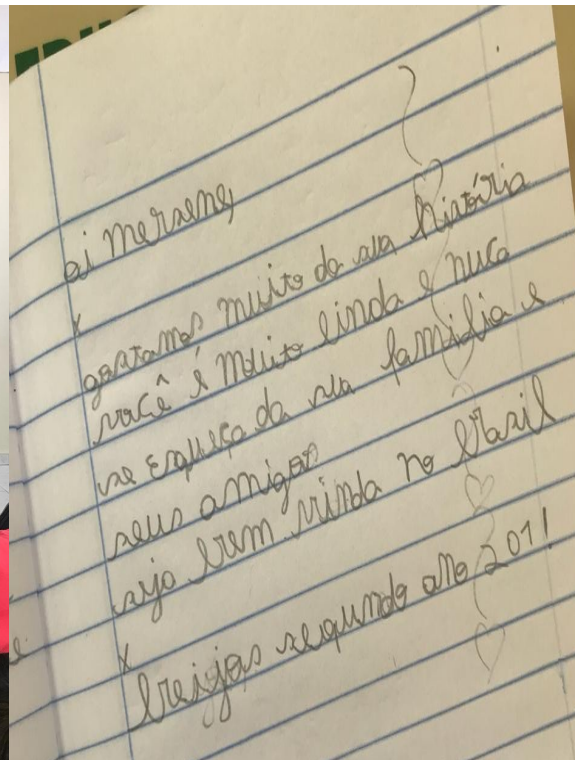 oi mersene,
gostamos muito da sua história
você é muito linda e nuca
se esqueça da sua família e
seus amigos
sejo bem vinda no Brasil
beijos segundo ano 201!